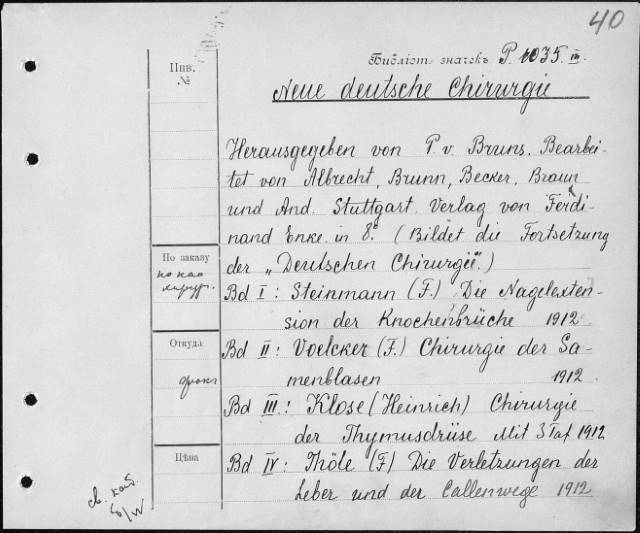 40
Инв.
№
Библіот. значекъ P. 1035. III.
Neue deutsche Chirurgie
Herausgegeben von P. v. Bruns. Bearbei-
tet von Albrecht, Brunn, Becker, Braun
und And. Stuttgart. Verlag von Ferdi-
nand Enke. in 8°. (Bildet die Fortsetzung
der „Deutschen Chirurgie".)
Bd I: Steinmann (F.) Die Nagelexten-
sion der Knochenbrüche 1912.
Bd II: Voelcker (F.) Chirurgie der Sa-
menblasen 1912.
Bd III.: Klose (Heinrich) Chirurgie
der Thymusdrüse Mit 3 Taf 1912
Bd IV: Thöle (F) Die Verletzungen der
Leber und der Gallenwege 1912
По заказу
хирург.
Откуда
Цѣна
св. каб.